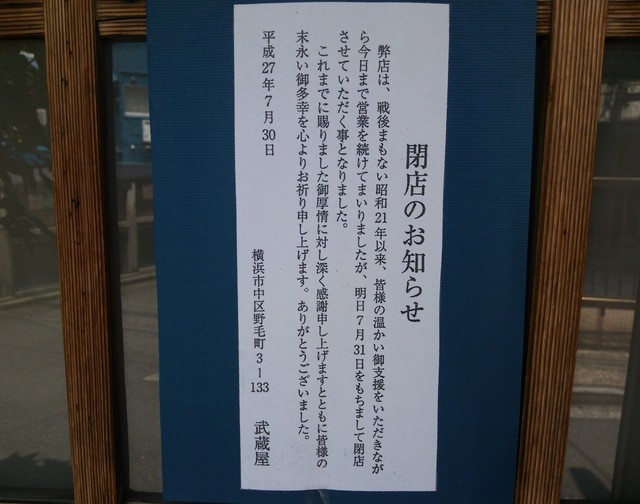 閉店のお知らせ
弊店は、戦後まもない昭和21年以来、皆様の温かい御支援をいただきなが
ら今日まで営業を続けてまいりましたが、明日7月31日をもちまして閉店
させていただく事となりました。
これまでに賜りました御厚情に対し深く感謝申し上げますとともに皆様の
末永い御多幸を心よりお祈り申し上げます。ありがとうございました。
平成27年7月30日
横浜市中区野毛町3-133 武蔵屋